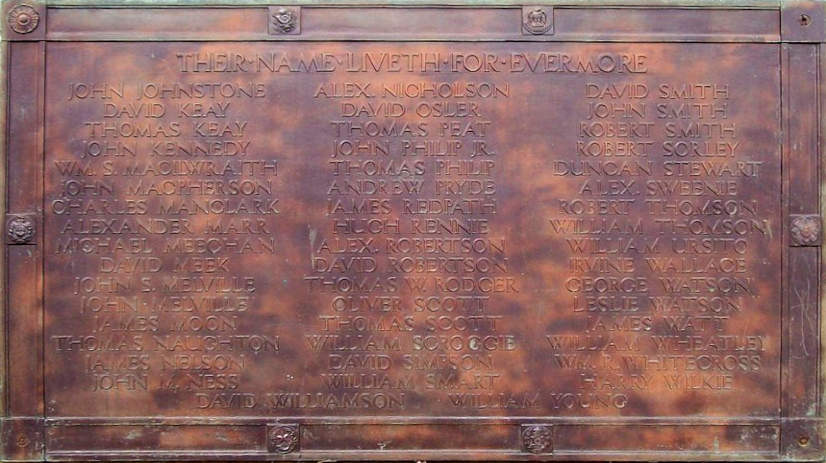 THEIR·NAME·LIVETH·FOR·EVERMORE
JOHN JOHNSTONE
DAVID KEAY
THOMAS KEAY
JOHN KENNEDY
WM. S. MACILWRAITH
JOHN MACPHERSON
CHARLES MANCLARK
ALEXANDER MARR
MICHAEL MEECHAN
DAVID MEEK
JOHN S. MELVILLE
JOHN MELVILLE
JAMES MOON
THOMAS NAUGHTON
JAMES NELSON
JOHN M. NESS
ALEX. NICHOLSON
DAVID OSLER
THOMAS PEAT
JOHN PHILIP JR.
THOMAS PHILIP
ANDREW PRYDE
JAMES REDPATH
HUGH RENNIE
ALEX. ROBERTSON
DAVID ROBERTSON
THOMAS W. RODGER
OLIVER SCOTT
THOMAS SCOTT
WILLIAM SCROGGIE
DAVID SIMPSON
WILLIAM SMART
DAVID SMITH
JOHN SMITH
ROBERT SMITH
ROBERT SORLEY
DUNCAN STEWART
ALEX. SWEENIE
ROBERT THOMSON
WILLIAM THOMSON
WILLIAM URSITO
IRVINE WALLACE
GEORGE WATSON
LESLIE WATSON
JAMES WATT
WILLIAM WHEATLEY
WM. R. WHITECROSS
HARRY WILKIE
DAVID WILLIAMSON WILLIAM YOUNG